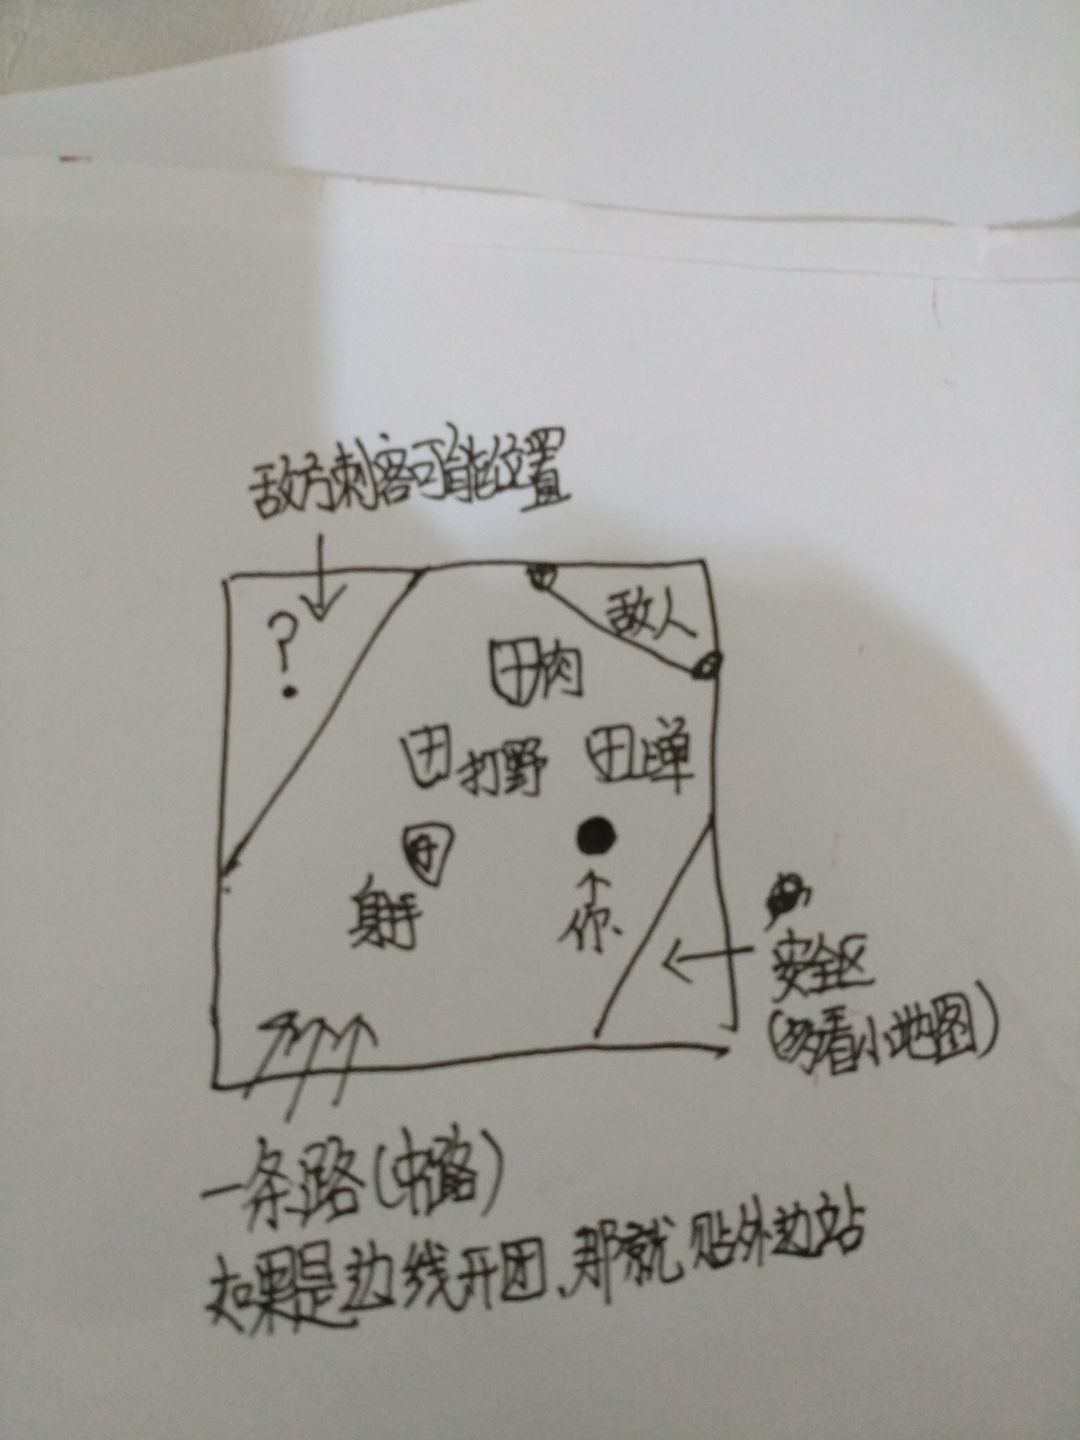 敌方刺客可能位置
?
敌人
肉
打野
上单
射手
你
安全区
(多看小地图)
一条路(中路)
如果是边线开团、那就贴外边站